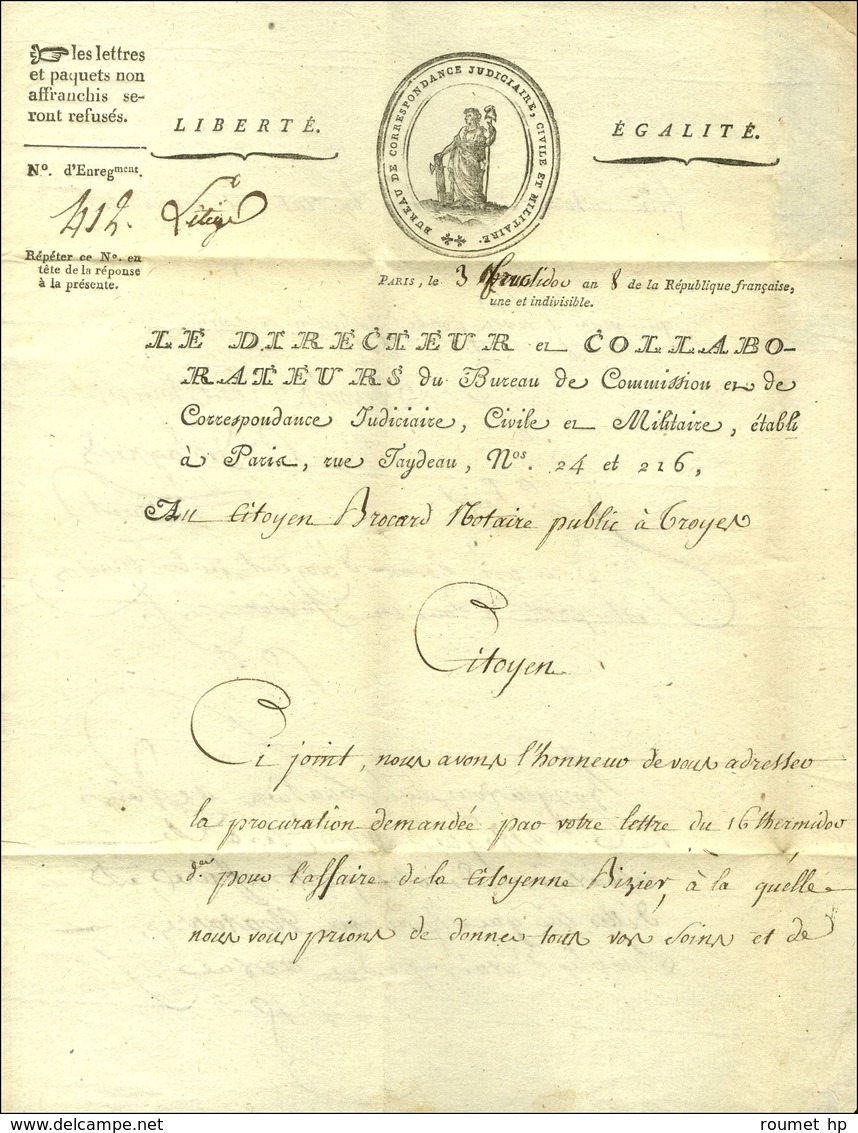 les lettres
et paquets non
affranchis se-
ront refusés.
LIBERTÉ.
BUREAU DE CORRESPONDANCE JUDICIAIRE, CIVILE ET MILITAIRE.
ÉGALITÉ.
N°. d'Enregment.
412.
Répéter ce N°. en
tête de la réponse
à la présente.
PARIS, le 3 fructidor an 8 de la République française,
une et indivisible.
LE DIRECTEUR et COLLABO-
RATEURS du Bureau de Commission et de
Correspondance Judiciaire, Civile et Militaire, établi
à Paris, rue Taydeau, Nos. 24 et 216,
Au Citoyen Brocard Notaire public à Troyes
Citoyen
Ci joint, nous avons l'honneur de vous adresser
la procuration demandée par votre lettre du 16 thermidor
der pour l'affaire de la Citoyenne Bizier, à la quelle
nous vous prions de donner tous vos soins et de
roumet hp